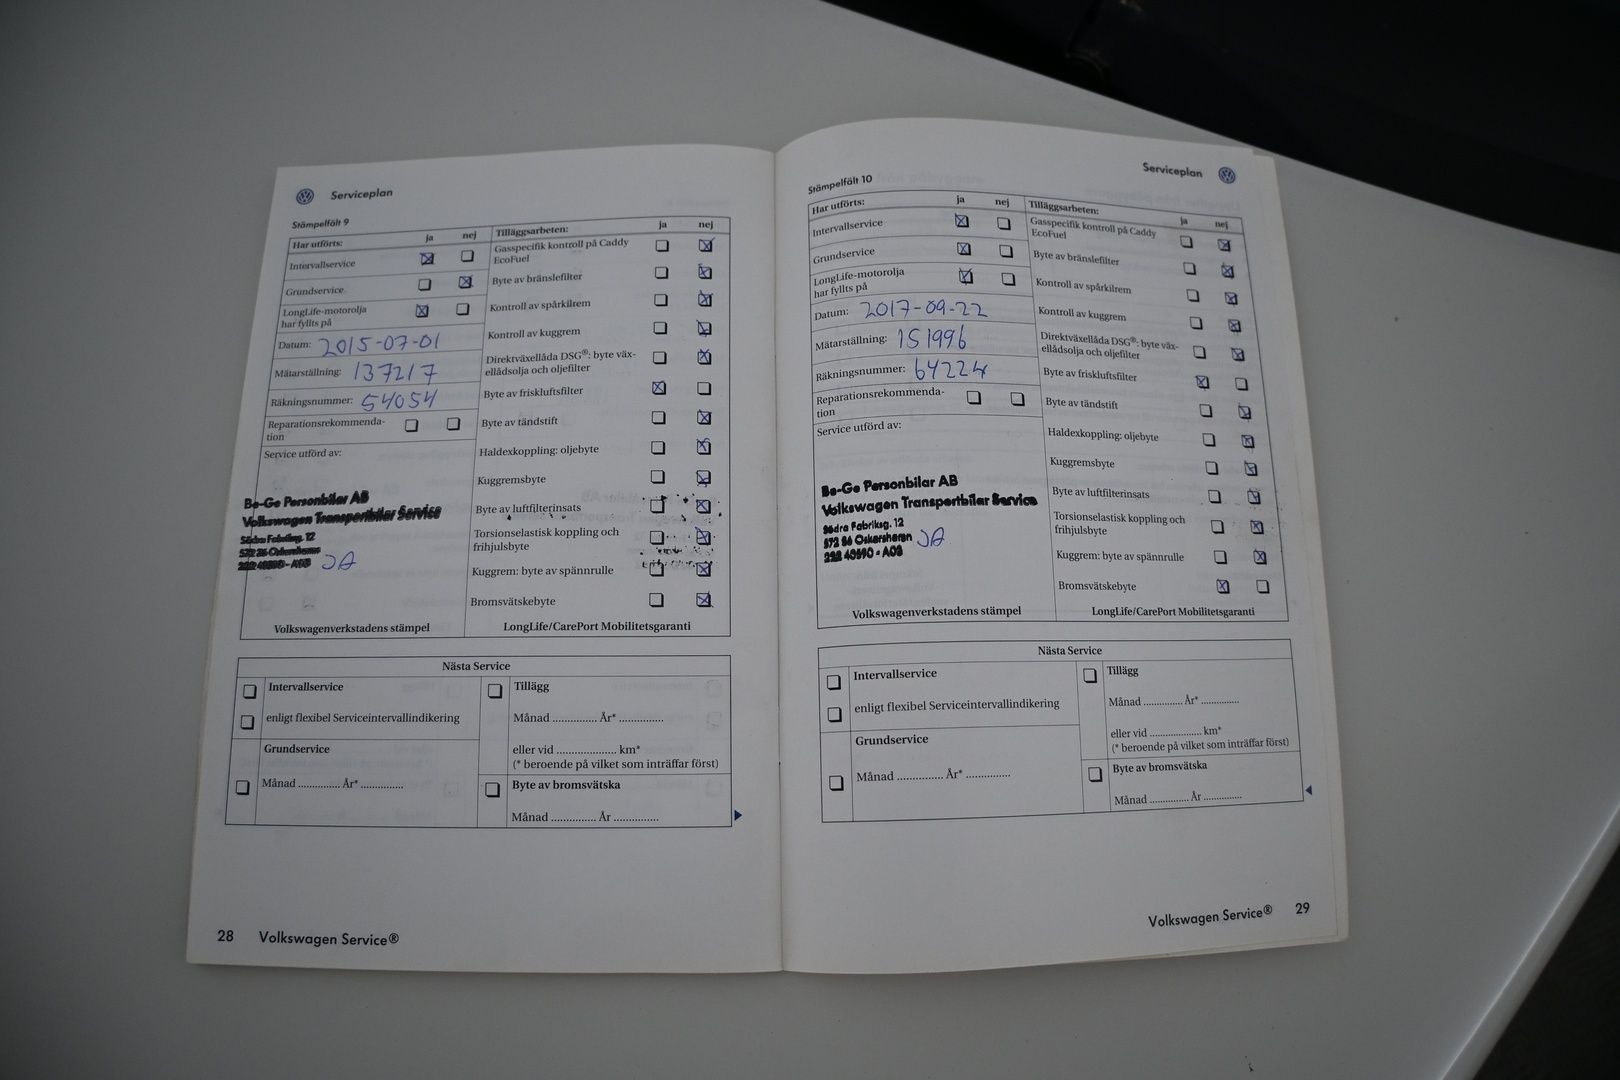 Serviceplan
Stämpelfält 9
Har utförts: ja nej
Intervallservice
Grundservice
LongLife-motorolja
har fyllts på
Datum: 2015-07-01
Mätarställning: 137217
Räkningsnummer: 54054
Reparationsrekommenda-
tion
Service utförd av:
Be-Ge Personbilar AB
Volkswagen Transportbilar Service
Södra Fabriksg. 12
572 36 Oskarshamn
JA
Volkswagenverkstadens stämpel
Tilläggsarbeten: ja nej
Gasspecifik kontroll på Caddy
EcoFuel
Byte av bränslefilter
Kontroll av spårkilrem
Kontroll av kuggrem
Direktväxellåda DSG®: byte väx-
ellådsolja och oljefilter
Byte av friskluftsfilter
Byte av tändstift
Haldexkoppling: oljebyte
Kuggremsbyte
Byte av luftfilterinsats
Torsionselastisk koppling och
frihjulsbyte
Kuggrem: byte av spännrulle
Bromsvätskebyte
LongLife/CarePort Mobilitetsgaranti
Nästa Service
Intervallservice
enligt flexibel Serviceintervallindikering
Grundservice
Månad .............. År* ..............
Tillägg
Månad .............. År* ..............
eller vid .................... km*
(* beroende på vilket som inträffar först)
Byte av bromsvätska
Månad .............. År ..............
28 Volkswagen Service®
Serviceplan
Stämpelfält 10
Har utförts: ja nej
Intervallservice
Grundservice
LongLife-motorolja
har fyllts på
Datum: 2017-09-22
Mätarställning: 151996
Räkningsnummer: 64224
Reparationsrekommenda-
tion
Service utförd av:
Be-Ge Personbilar AB
Volkswagen Transportbilar Service
Södra Fabriksg. 12
572 36 Oskarshamn
JA
Volkswagenverkstadens stämpel
Tilläggsarbeten: ja nej
Gasspecifik kontroll på Caddy
EcoFuel
Byte av bränslefilter
Kontroll av spårkilrem
Kontroll av kuggrem
Direktväxellåda DSG®: byte väx-
ellådsolja och oljefilter
Byte av friskluftsfilter
Byte av tändstift
Haldexkoppling: oljebyte
Kuggremsbyte
Byte av luftfilterinsats
Torsionselastisk koppling och
frihjulsbyte
Kuggrem: byte av spännrulle
Bromsvätskebyte
LongLife/CarePort Mobilitetsgaranti
Nästa Service
Intervallservice
enligt flexibel Serviceintervallindikering
Grundservice
Månad .............. År* ..............
Tillägg
Månad .............. År* ..............
eller vid .................... km*
(* beroende på vilket som inträffar först)
Byte av bromsvätska
Månad .............. År ..............
Volkswagen Service® 29